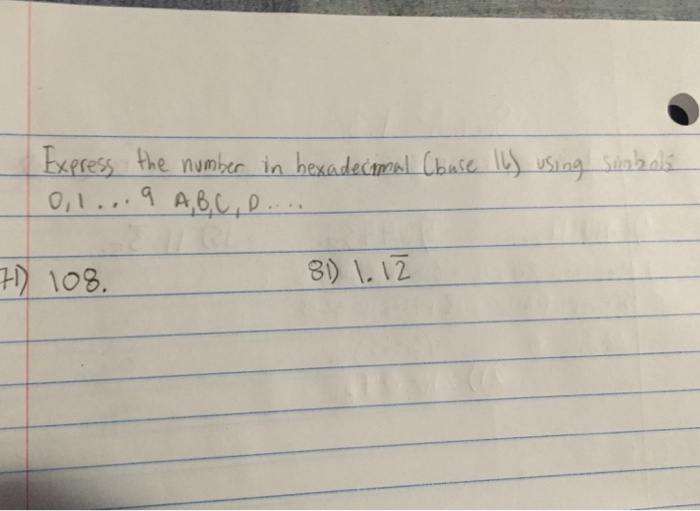 Express the number in hexadecimal (base 16) using simbols
0,1...9 A,B,C,D....
71) 108. 81) 1.12̅